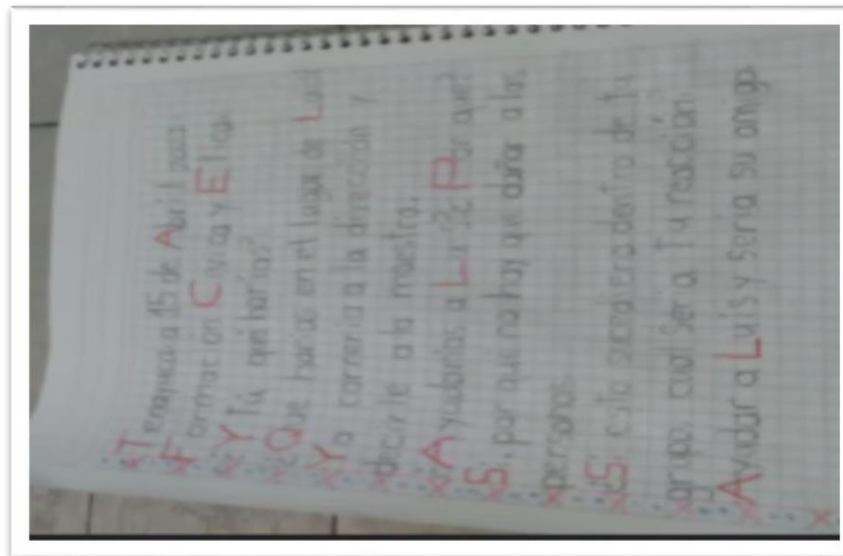 Tenayuca a 15 de Abril
Formación Cívica y Ética.
¿Y Tú qué harías?
¿Que harías en el lugar de Luis?
Yo correría a la dirección y
decirle a la maestra.
Ayudarías a Luis? ¿Por que?
Si, por que no hay que dañar a las
personas.
¿Si esto sucediera dentro de Tu
grupo, cual Seria Tu reacción
Ayudar a Luis y seria su amigo.